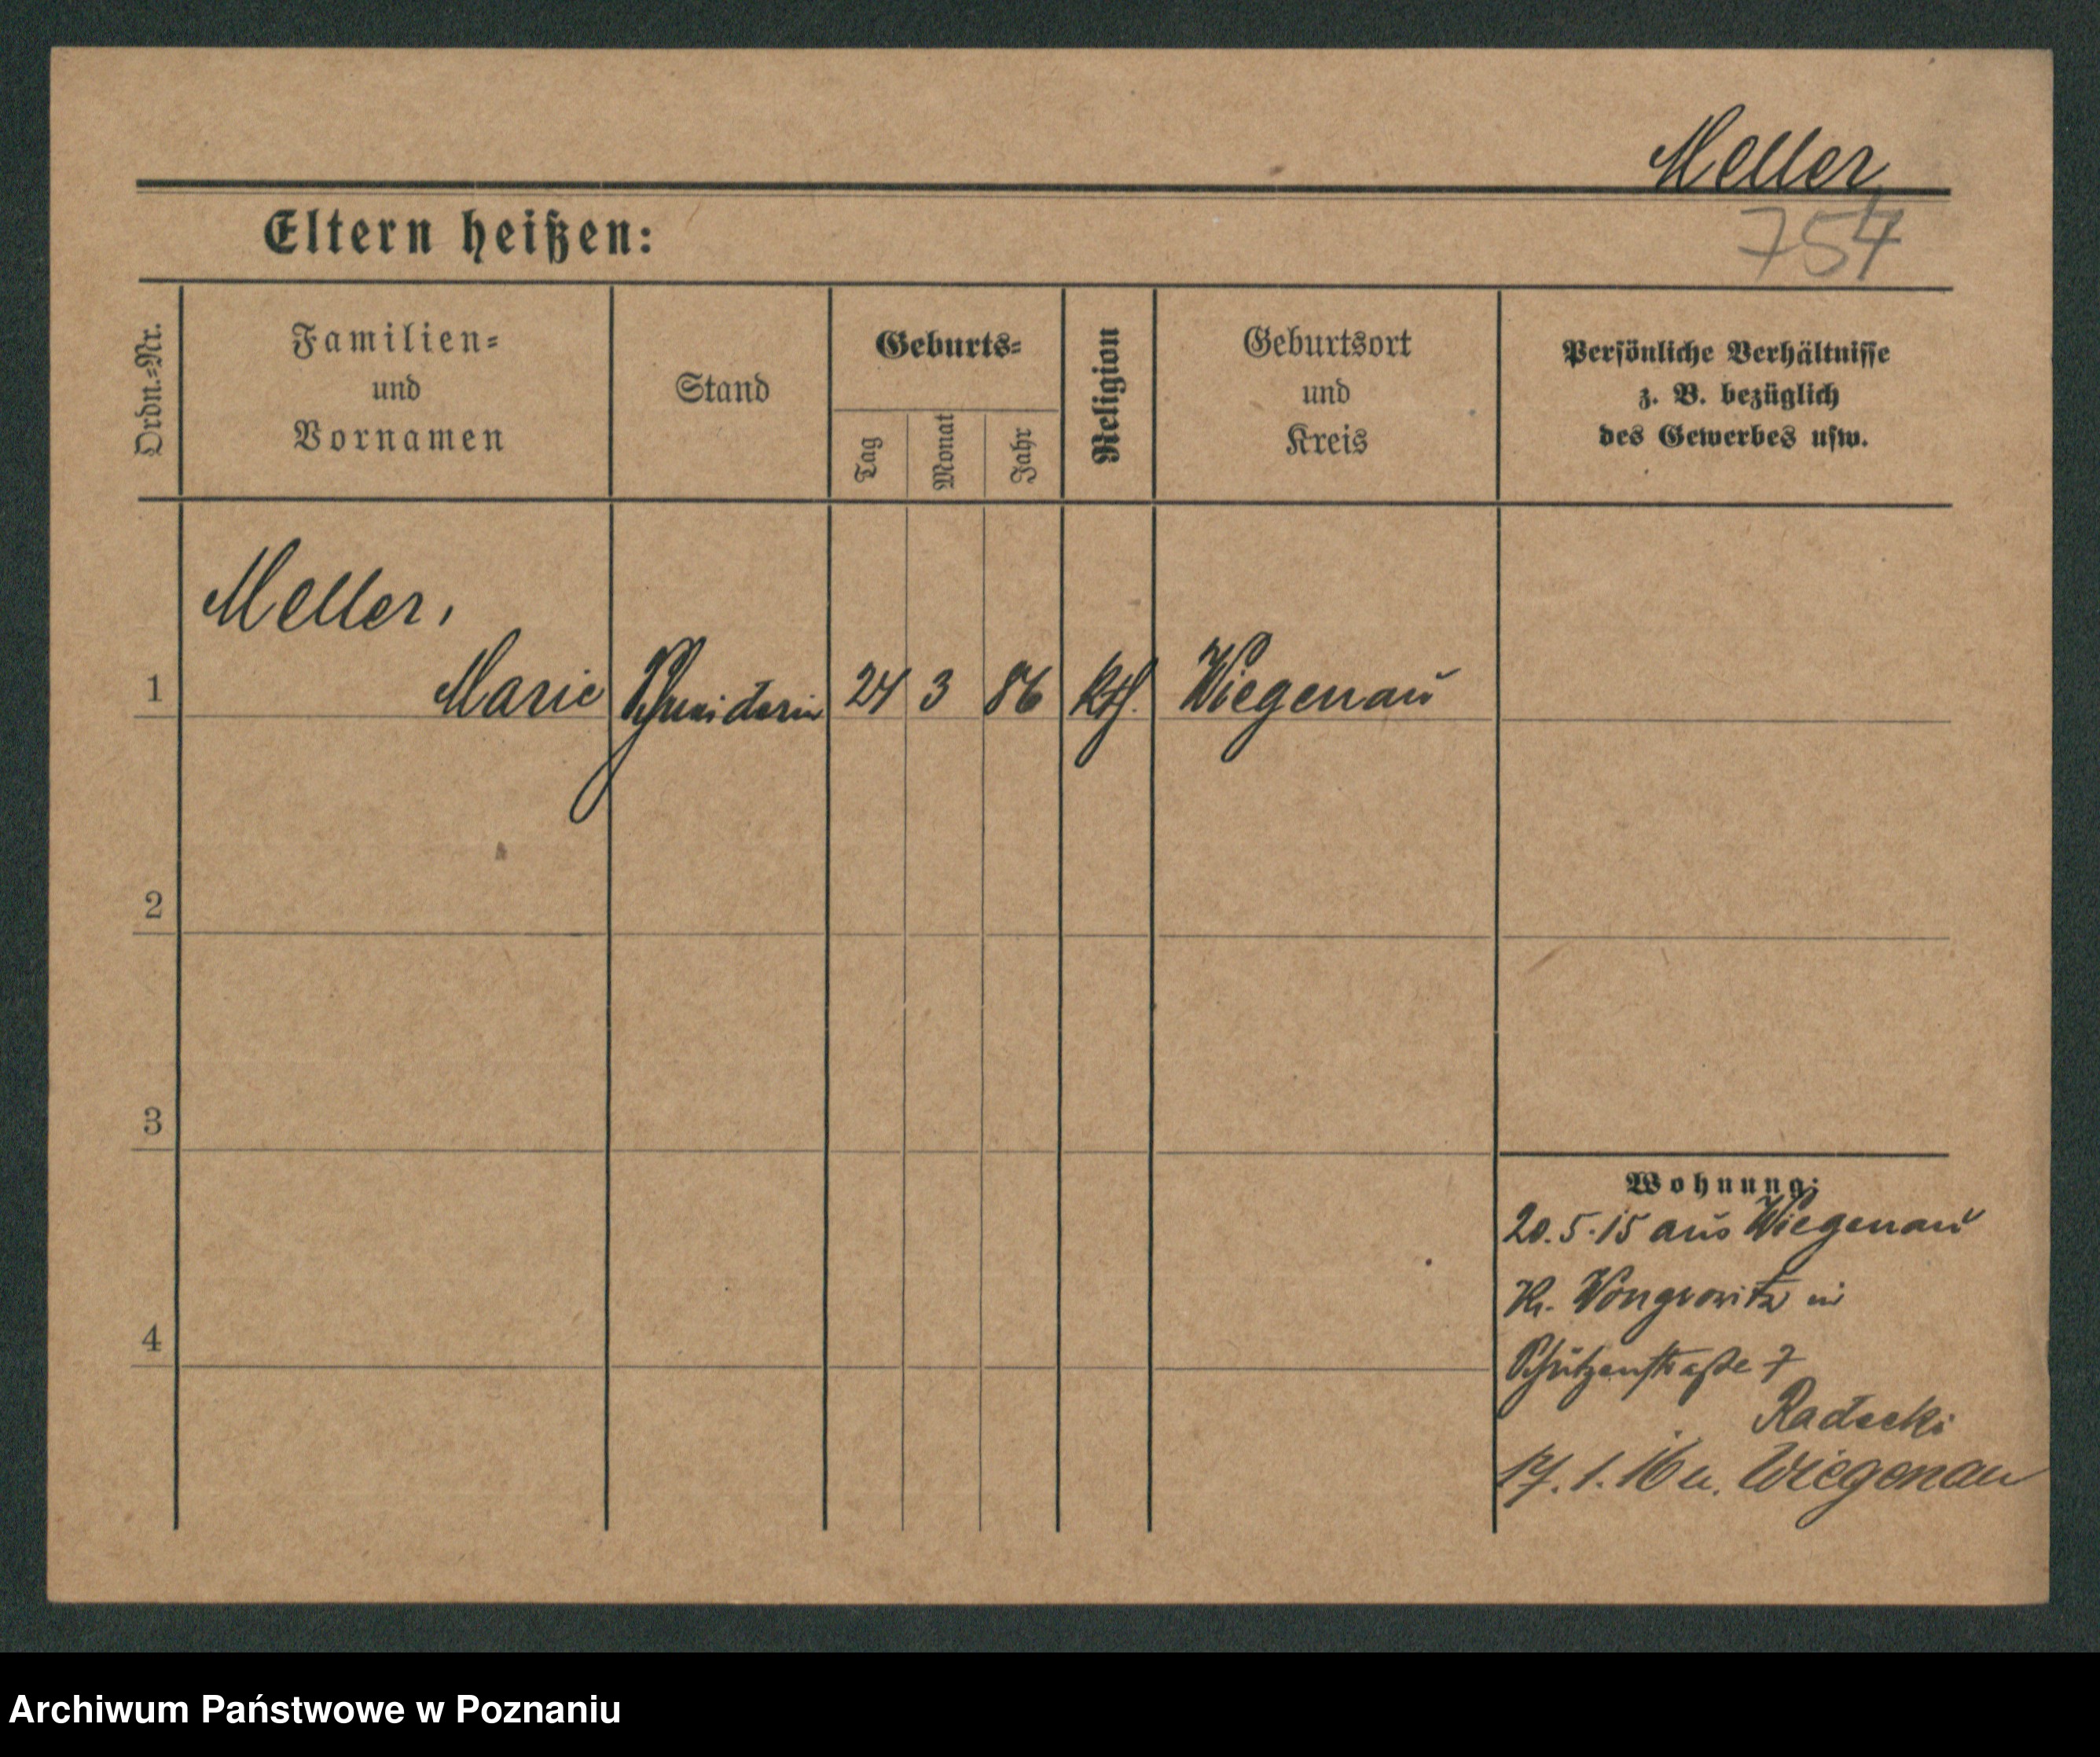 Meller
754
Eltern heißen:
Ordn.-Nr.
Familien-
und
Vornamen
Stand
Geburts-
Tag
Monat
Jahr
Religion
Geburtsort
und
Kreis
Persönliche Verhältnisse
z. B. bezüglich
des Gewerbes usw.
Meller,
1 Marie Schneiderin 24 3 86 kth. Wiegenau
2
3
4
Wohnung:
20.5.15 aus Wiegenau
Kr. Wongrowitz in
Schützenstraße 7
Radecki
17.1.16 n. Wiegenau
Archiwum Państwowe w Poznaniu